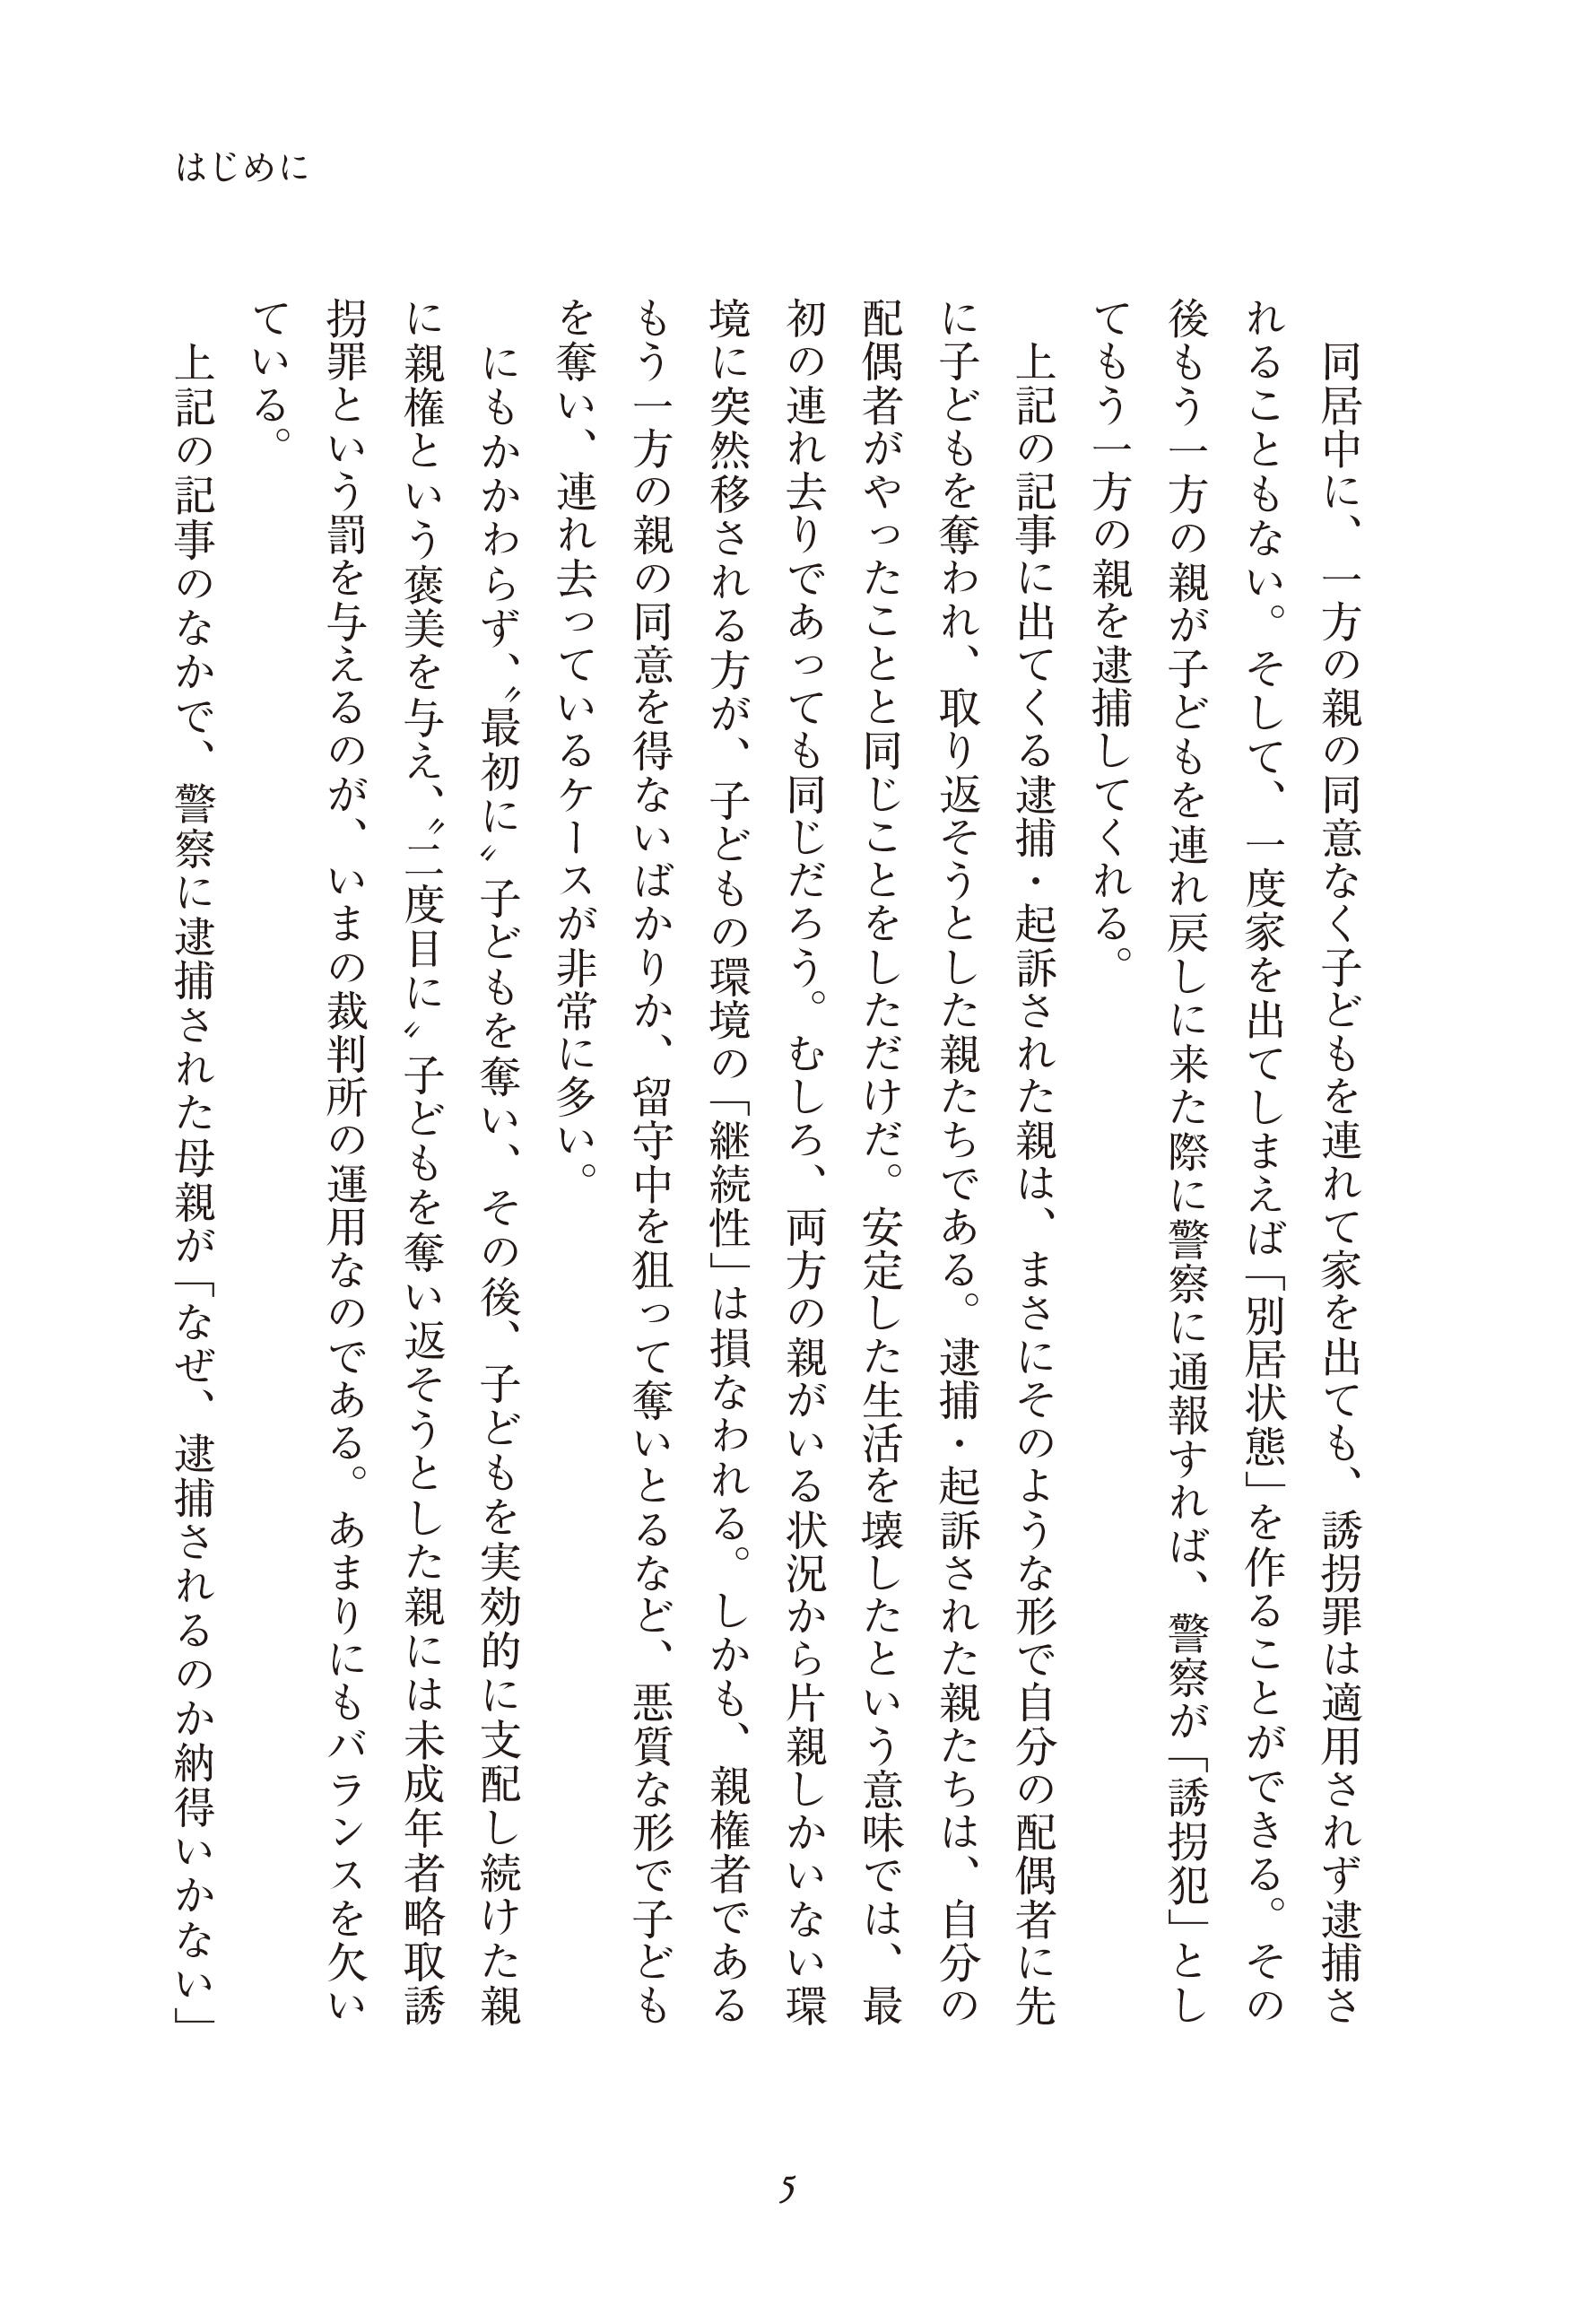 はじめに
　同居中に、一方の親の同意なく子どもを連れて家を出ても、誘拐罪は適用されず逮捕さ
れることもない。そして、一度家を出てしまえば「別居状態」を作ることができる。その
後もう一方の親が子どもを連れ戻しに来た際に警察に通報すれば、警察が「誘拐犯」とし
てもう一方の親を逮捕してくれる。
　上記の記事に出てくる逮捕・起訴された親は、まさにそのような形で自分の配偶者に先
に子どもを奪われ、取り返そうとした親たちである。逮捕・起訴された親たちは、自分の
配偶者がやったことと同じことをしただけだ。安定した生活を壊したという意味では、最
初の連れ去りであっても同じだろう。むしろ、両方の親がいる状況から片親しかいない環
境に突然移される方が、子どもの環境の「継続性」は損なわれる。しかも、親権者である
もう一方の親の同意を得ないばかりか、留守中を狙って奪いとるなど、悪質な形で子ども
を奪い、連れ去っているケースが非常に多い。
　にもかかわらず、〝最初に〟子どもを奪い、その後、子どもを実効的に支配し続けた親
に親権という褒美を与え、〝二度目に〟子どもを奪い返そうとした親には未成年者略取誘
拐罪という罰を与えるのが、いまの裁判所の運用なのである。あまりにもバランスを欠い
ている。
　上記の記事のなかで、警察に逮捕された母親が「なぜ、逮捕されるのか納得いかない」
5